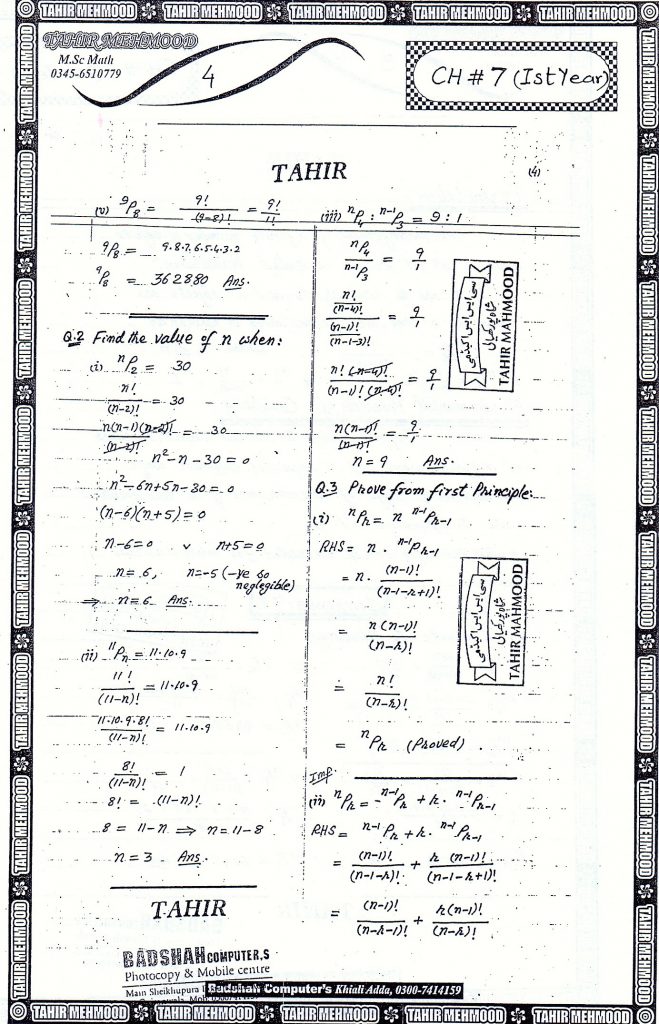 TAHIR MEHMOOD TAHIR MEHMOOD TAHIR MEHMOOD TAHIR MEHMOOD TAHIR MEHMOOD
TAHIR MEHMOOD
M.Sc Math
0345-6510779
4
CH # 7 (Ist Year)
TAHIR
(4)
(v) ⁹P₈ = 9!/(9-8)! = 9!/1!
⁹P₈ = 9.8.7.6.5.4.3.2
⁹P₈ = 362880 Ans.
Q.2 Find the value of n when:
(i) ⁿP₂ = 30
n!/(n-2)! = 30
n(n-1)(n-2)!/(n-2)! = 30
n²-n-30=0
n²-6n+5n-30=0
(n-6)(n+5)=0
n-6=0 v n+5=0
n=6, n=-5 (-ve so
neglegible)
⇒ n=6 Ans.
(ii) ¹¹Pₙ = 11.10.9
11!/(11-n)! = 11.10.9
11.10.9.8!/(11-n)! = 11.10.9
8!/(11-n)! = 1
8! = (11-n)!
8 = 11-n ⇒ n=11-8
n=3 Ans.
TAHIR
(iii) ⁿP₄ : ⁿ⁻¹P₃ = 9 : 1
ⁿP₄/ⁿ⁻¹P₃ = 9/1
(n!/(n-4)!)/((n-1)!/(n-1-3)!) = 9/1
n! (n-4)!/(n-1)! (n-4)! = 9/1
n(n-1)!/(n-1)! = 9/1
n=9 Ans.
Q.3 Prove from first Principle:
(i) ⁿPᵣ = n ⁿ⁻¹Pᵣ₋₁
RHS = n . ⁿ⁻¹Pᵣ₋₁
= n . (n-1)!/(n-1-r+1)!
= n(n-1)!/(n-r)!
= n!/(n-r)!
= ⁿPᵣ (Proved)
Imp.
(ii) ⁿPᵣ = ⁿ⁻¹Pᵣ + r . ⁿ⁻¹Pᵣ₋₁
RHS = ⁿ⁻¹Pᵣ + r . ⁿ⁻¹Pᵣ₋₁
= (n-1)!/(n-1-r)! + r (n-1)!/(n-1-r+1)!
= (n-1)!/(n-r-1)! + r(n-1)!/(n-r)!
TAHIR MAHMOOD
TAHIR MAHMOOD
BADSHAH COMPUTER,S
Photocopy & Mobile centre
Main Sheikhupura
Badshah Computer's Khiali Adda, 0300-7414159
TAHIR MEHMOOD TAHIR MEHMOOD TAHIR MEHMOOD TAHIR MEHMOOD TAHIR MEHMOOD